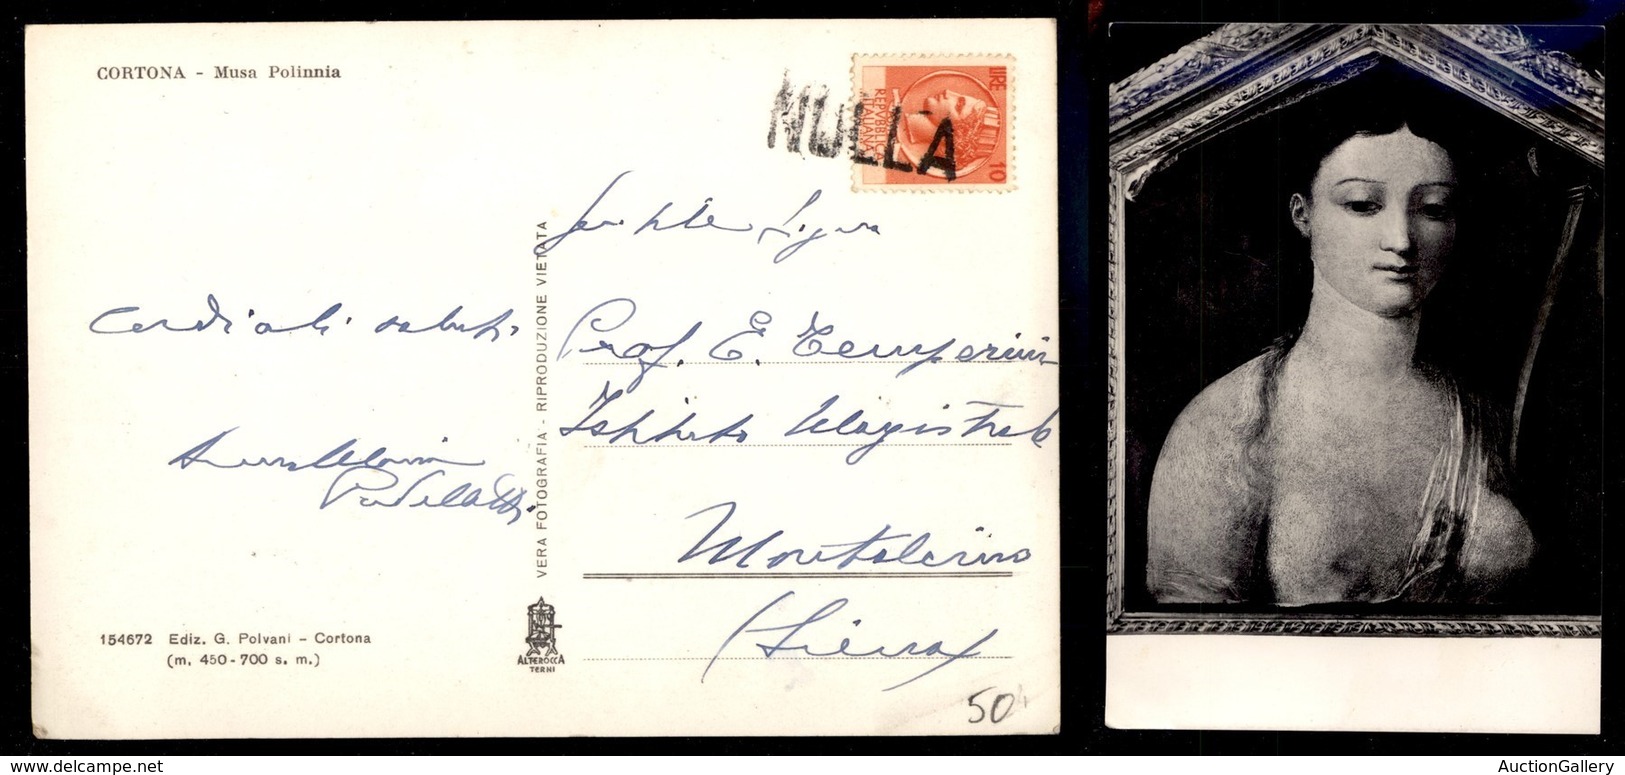 CORTONA - Musa Polinnia
NULLA
LIRE 10
REPVBBLICA
ITALIANA
Gentile Signora
Prof. E. Temperini
Istituto Magistrale
Montalcino
(Siena)
Cordiali saluti
VERA FOTOGRAFIA - RIPRODUZIONE VIETATA
154672 Ediz. G. Polvani - Cortona
(m. 450-700 s. m.)
ALTEROCCA
TERNI
50
AuctionGallery